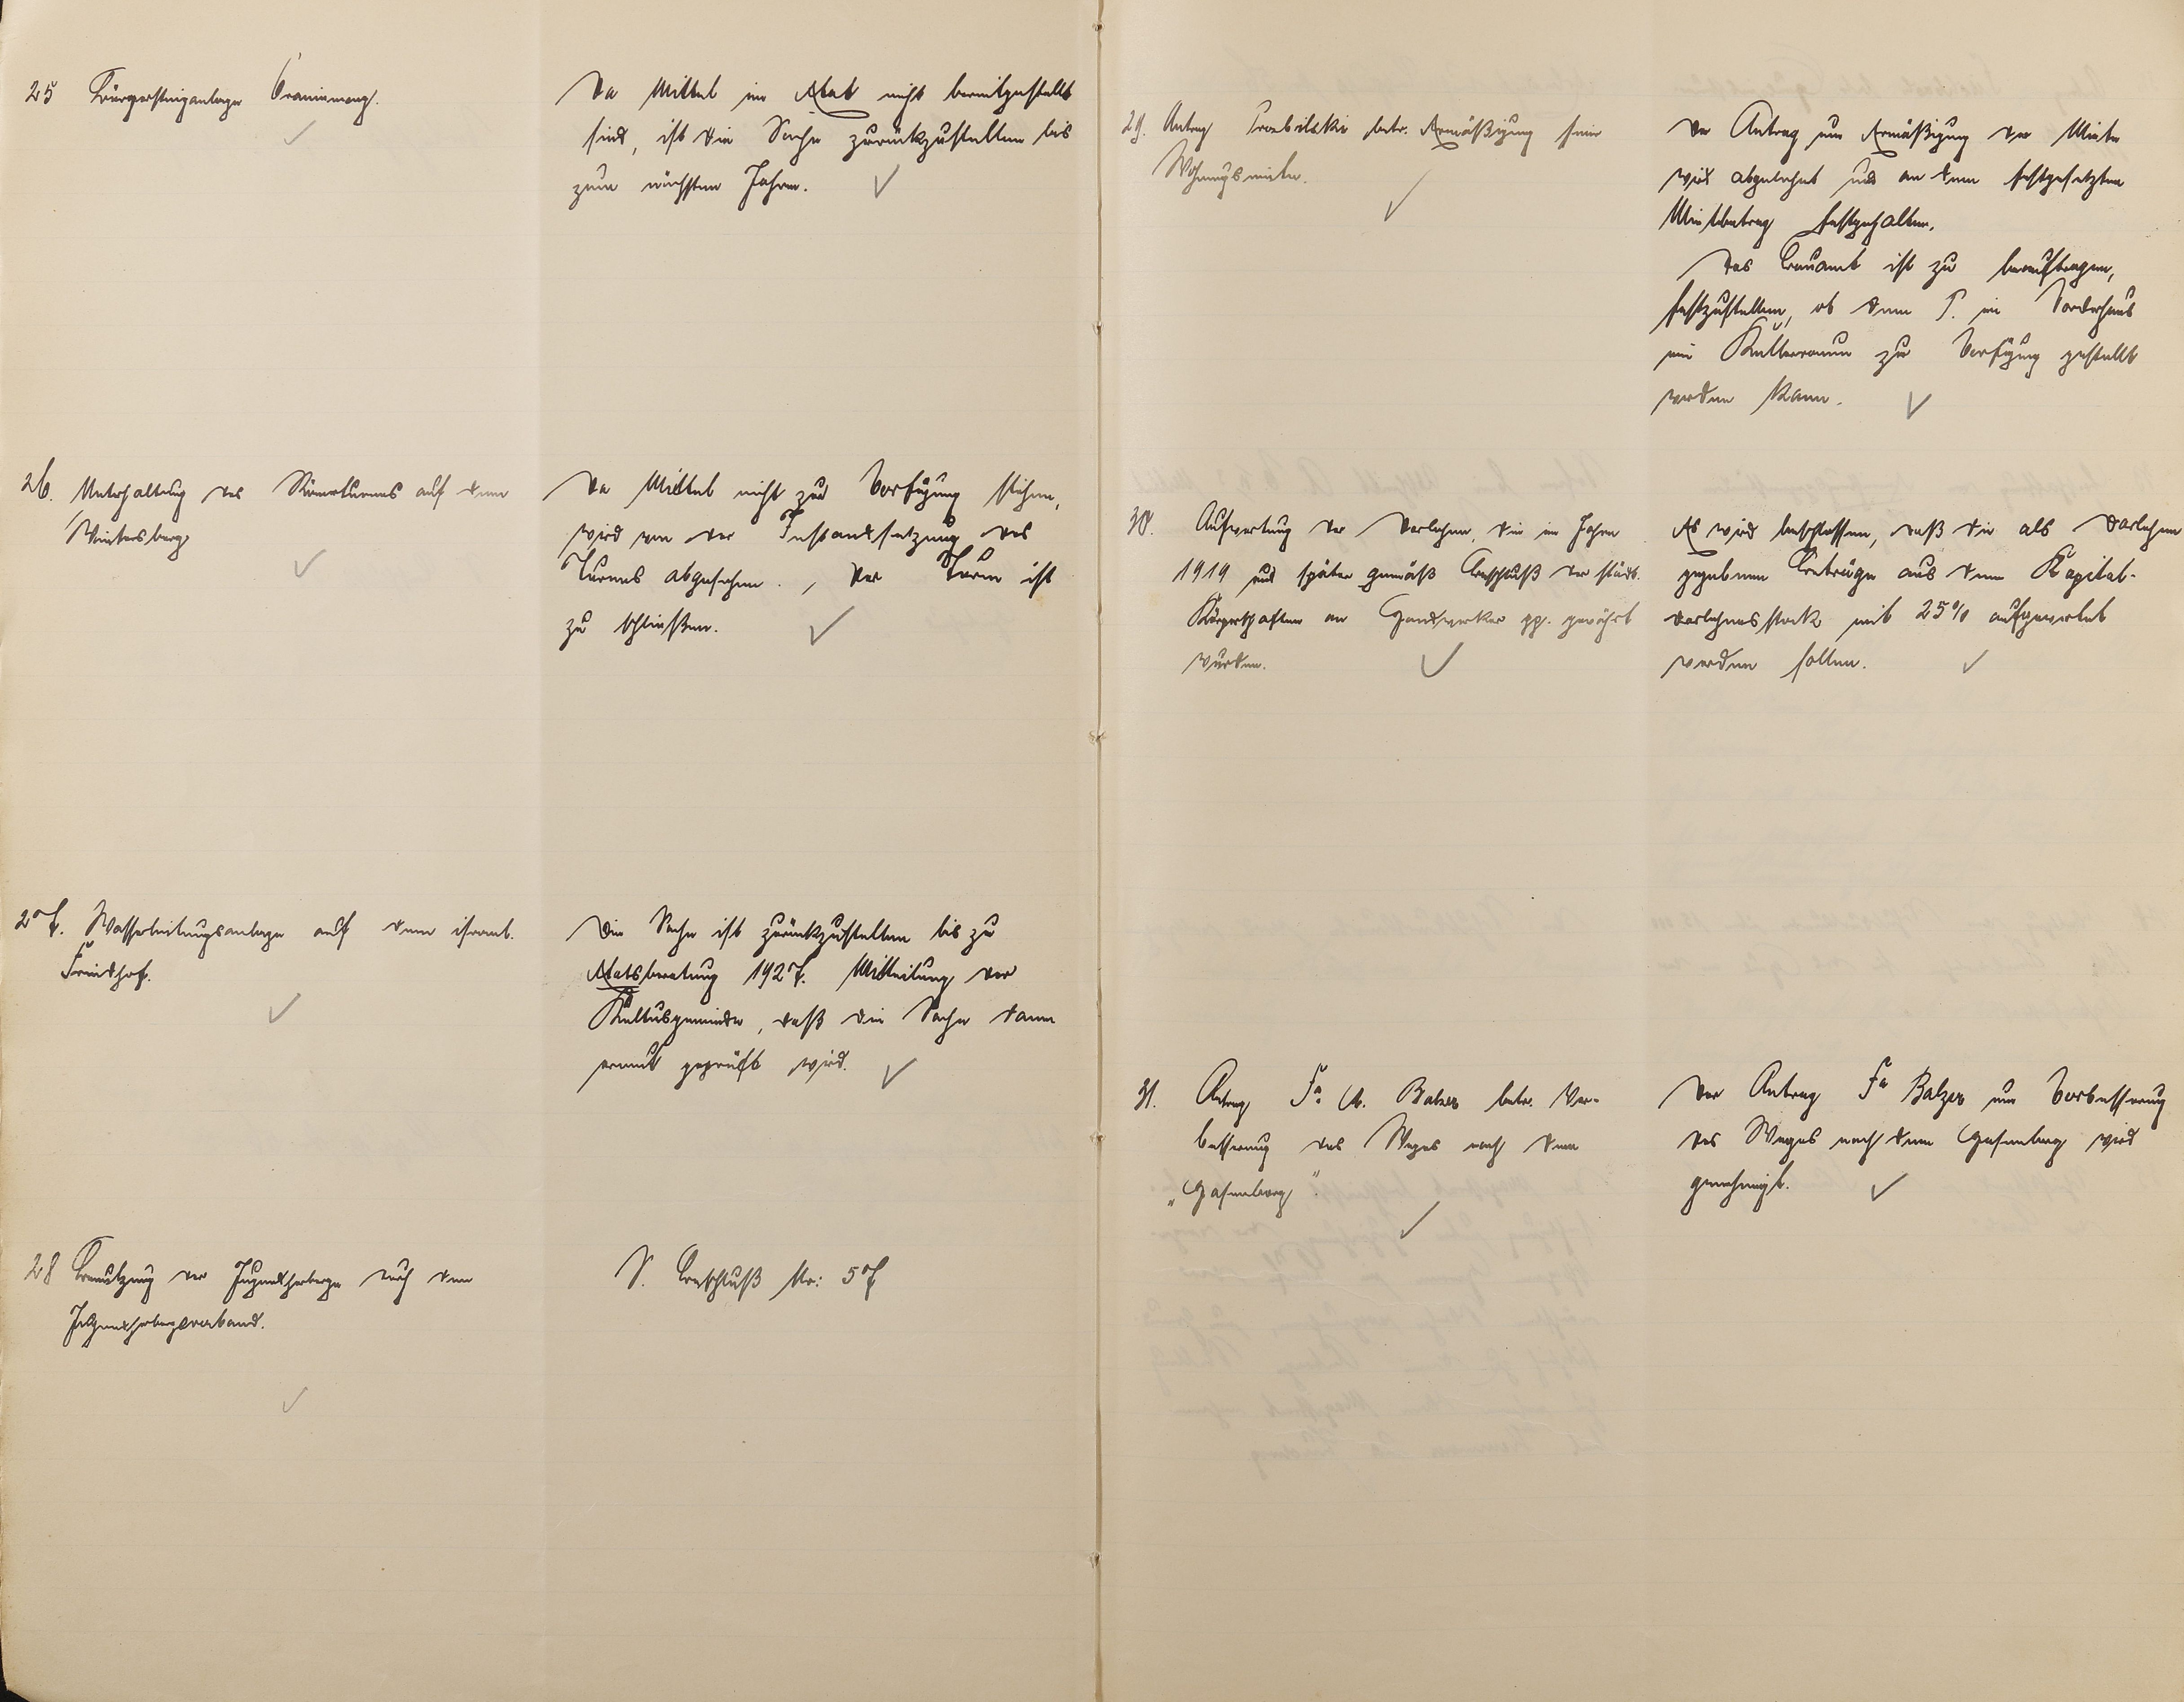 25 Bürgersteiganlage Oranienweg.
Da Mittel im Etat nicht bereitgestellt
sind, ist die Sache zurückzustellen bis
zum nächsten Jahre.
26. Unterhaltung des Römerturmes auf dem
Wintersberg
Da Mittel nicht zur Verfügung stehen,
wird von der Instandsetzung des
Turmes abgesehen. , Der Turm ist
zu schließen.
27. Wasserleitungsanlage auf dem israel.
Friedhof.
Die Sache ist zurückzustellen bis zu
Etatsberatung 1927. Mitteilung der
Kultusgemeinde, daß die Sache dann
erneut geprüft wird.
28 Benutzung der Jugendherberge durch den
Jugendherbergsverband.
S. Beschluß Nr: 57
29. Antrag betr. Ermäßigung seiner
Wohnungsmiete.
Der Antrag um Ermäßigung der Miete
wird abgelehnt und an dem festgesetzten
Mietbetrag festgehalten.
Das Bauamt ist zu beauftragen,
festzustellen, ob dem P. im Vorderhaus
ein Kellerraum zur Verfügung gestellt
werden kann.
30. Aufwertung der Darlehen, die im Jahre
1919 und später gemäß Beschluß der städt.
Körperschaften an Handwerker pp. gewährt
wurden.
Es wird beschlossen, daß die als Darlehen
gegebenen Beträge aus dem Kapital-
darlehnsstock mit 25% aufgewertet
werden sollen.
31. Antrag Fa. A. Balzer betr. Ver-
besserung des Weges nach dem
„Hasenberg".
Der Antrag Fa Balzer um Verbesserung
des Weges nach dem Hasenberg wird
genehmigt.